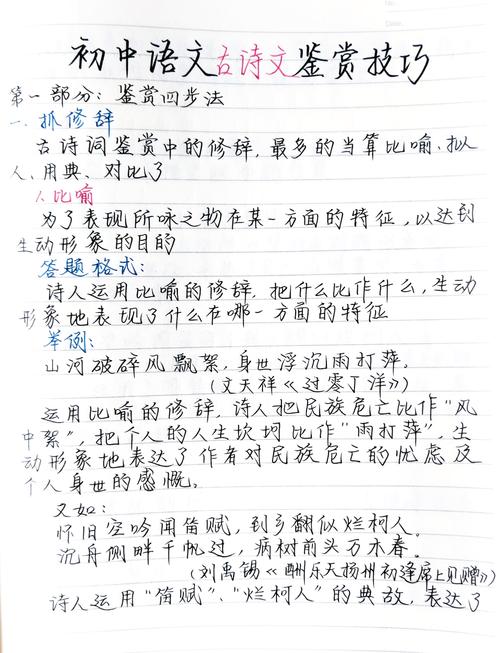 No.
Date.
初中语文古诗文鉴赏技巧
第一部分：鉴赏四步法
一、抓修辞
古诗词鉴赏中的修辞，最多的当算比喻、拟
人、用典、对比了
1.比喻
为了表现所咏之物在某一方面的特征，以达到
生动形象的目的
答题格式：
诗人运用比喻的修辞，把什么比作什么，生动
形象地表现了什么在哪一方面的特征
举例：
山河破碎风飘絮，身世浮沉雨打萍。
（文天祥《过零丁洋》）
运用比喻的修辞，诗人把民族危亡比作“风
中絮”，把个人的人生坎坷比作“雨打萍”，生
动形象地表达了作者对民族危亡的忧虑及
个人身世的感慨。
又如：
怀旧空吟闻笛赋，到乡翻似烂柯人。
沉舟侧畔千帆过，病树前头万木春。
（刘禹锡《酬乐天扬州初逢席上见赠》）
诗人运用“笛赋”、“烂柯人”的典故，表达了